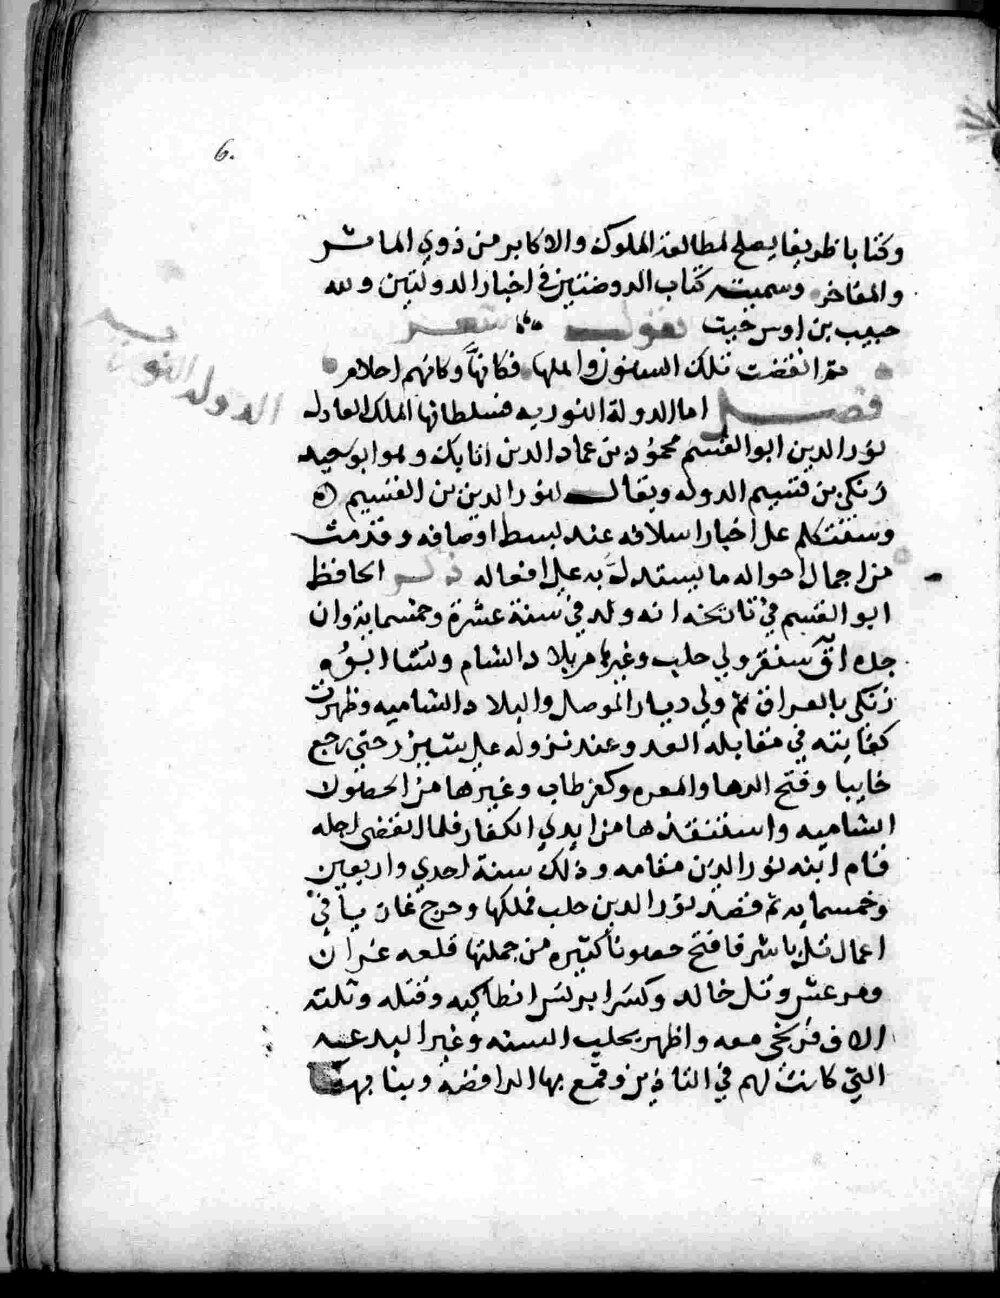 6.
وكتابا ظريفا يصلح لمطالعة الملوك والاكابر من ذوي الماثر
والمفاخر وسميته كتاب الروضتين في اخبار الدولتين ولله
حبيب بن اوس حيث يقول شعر
ثم انقضت تلك السنون واهلها فكانها وكانهم احلام
الدولة النورية
فصل اما الدولة النوريه فسلطانها الملك العادل
نور الدين ابو القسم محمود بن عماد الدين اتابك وهو ابو سعيد
زنكي بن قسيم الدوله ويقال لنور الدين بن القسيم
وسنتكلم على اخبار اسلافه عند بسط اوصافه وقدمت
من اجمال احواله ما يستدل به على افعاله ذكر الحافظ
ابو القسم في تاريخه انه ولد في سنة عشرة وخمسماية وان
جده اق سنقر ولي حلب وغيرها من بلاد الشام ونشا ابوه
زنكي بالعراق ثم ولي ديار الموصل والبلاد الشاميه وظهرت
كفايته في مقابله العدو عند نزوله على شيزر حتى رجع
خايبا وفتح الرها والمعره وكفر طاب وغيرها من الحصون
الشاميه واستنقذها من ايدي الكفار فلما انقضى اجله
قام ابنه نور الدين مقامه وذلك سنة احدي واربعين
وخمسمايه ثم قصد نور الدين حلب فملكها وخرج غازيا في
اعمال تل باشر فافتتح حصونا كثيره من جملتها قلعه عزران
ومرعش وتل خالد وكسر ابرنس انطاكيه وقتله وثلثة
الاف فرنجي معه واظهر بحلب السنه وغير البدعه
التي كانت لهم في التاذين وقمع بها الرافضه وبنا بها